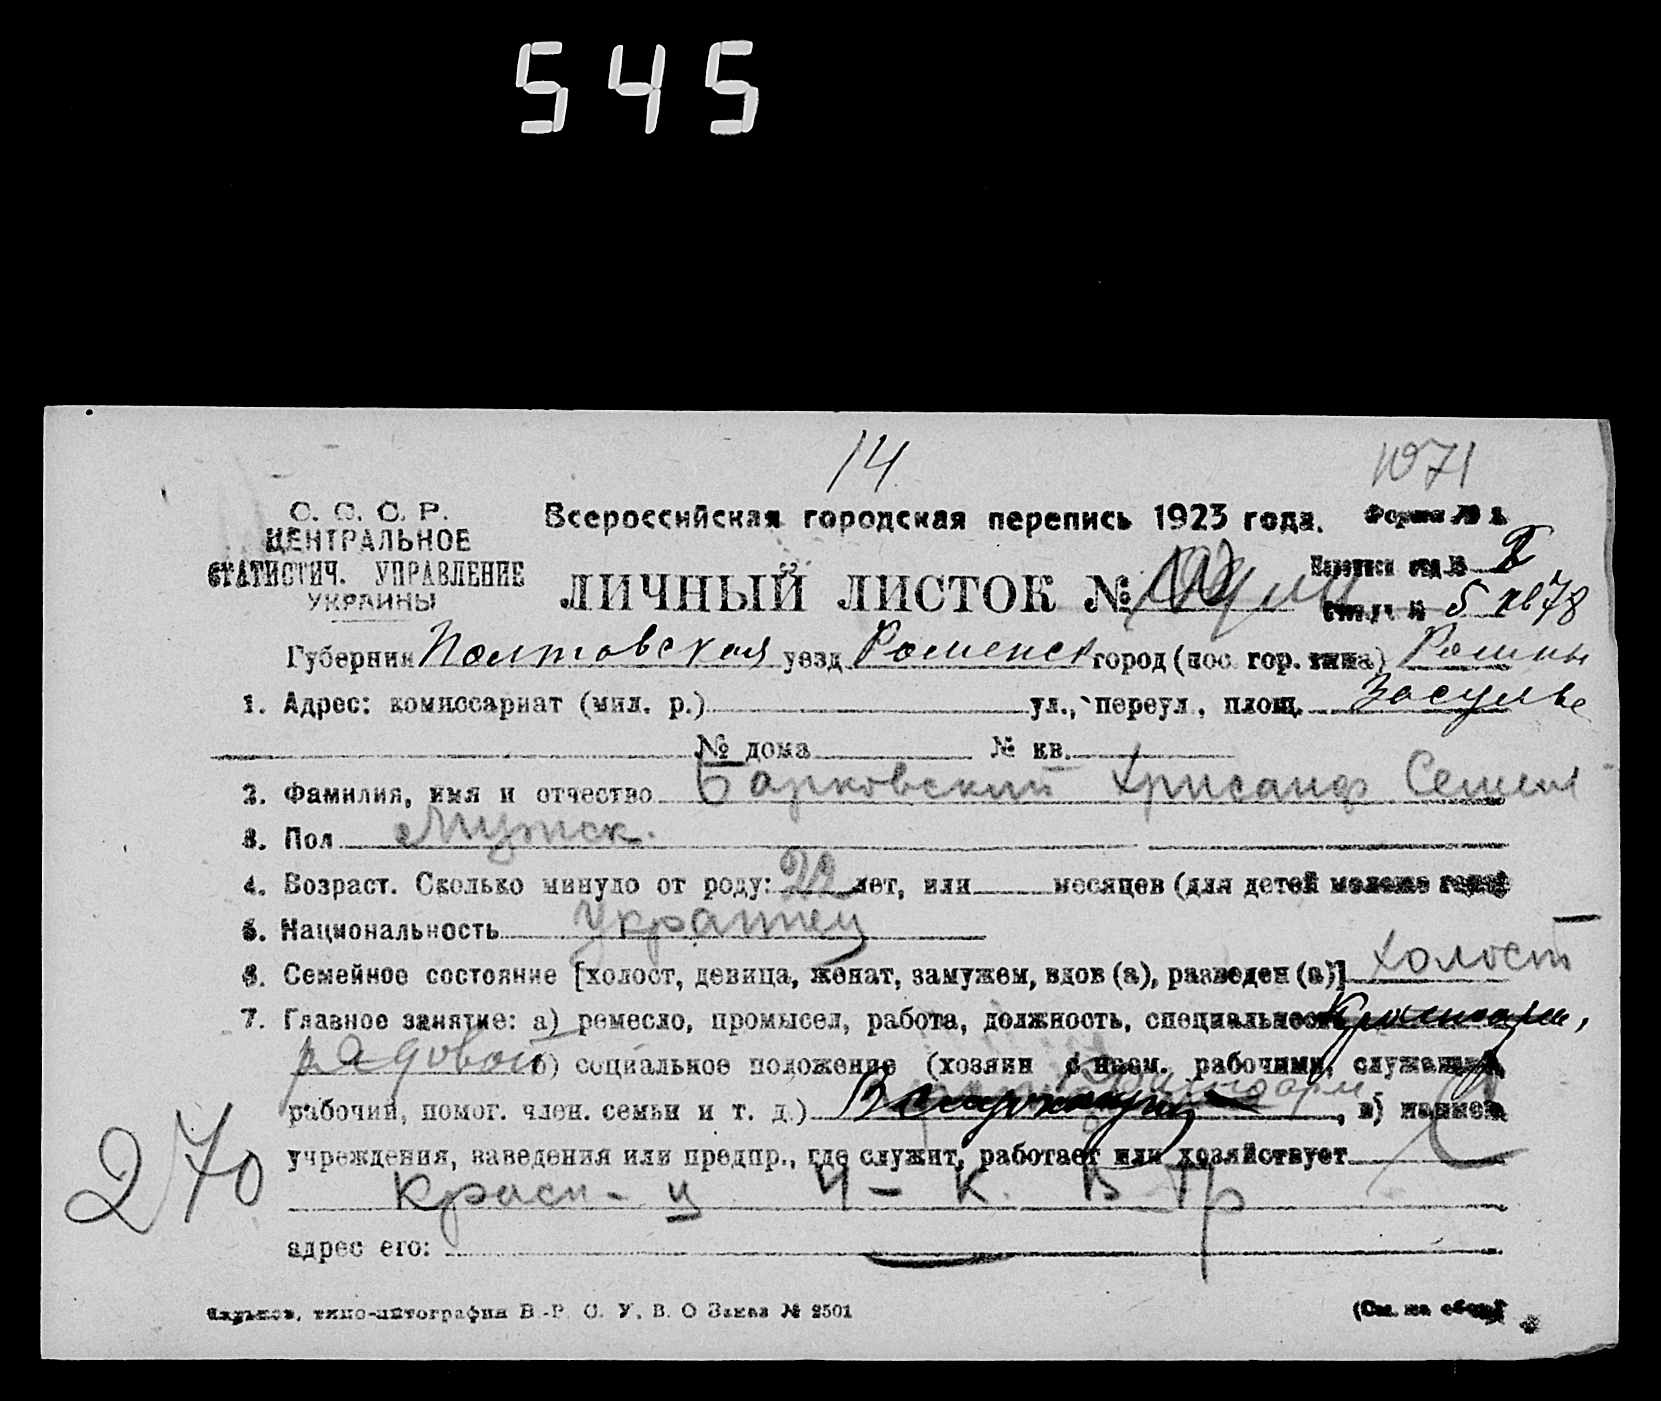 545
14
1071
С. С. С. Р.
ЦЕНТРАЛЬНОЕ
СТАТИСТИЧ. УПРАВЛЕНИЕ
УКРАИНЫ
Всероссийская городская перепись 1923 года.
Форма № 1.
ЛИЧНЫЙ ЛИСТОК №
5 кв 78
Губерния Полтовская уезд Роменск город (пос. гор. типа) Ромны
1. Адрес: комиссариат (мил. р.) ул., переул., площ. Засулье
№ дома № кв.
2. Фамилия, имя и отчество Барковский Хрисанф Семен
3. Пол Мужск.
4. Возраст. Сколько минуло от роду: 22 лет, или месяцев (для детей
5. Национальность Украинец
6. Семейное состояние [холост, девица, женат, замужем, вдов (а), разведен (а)] холост
7. Главное занятие: а) ремесло, промысел, работа, должность, специальность
рядовой б) социальное положение (хозяин с наем. рабочими, служащий,
рабочий, помог. член. семьи и т. д.) , в) наимен.
учреждения, заведения или предпр., где служит, работает или хозяйствует
270
красн-ц Ч-К. В Тр
адрес его:
Харьков, типо-литография В.-Р. С. У. В. О Заказ № 2501
(См. на обор.)